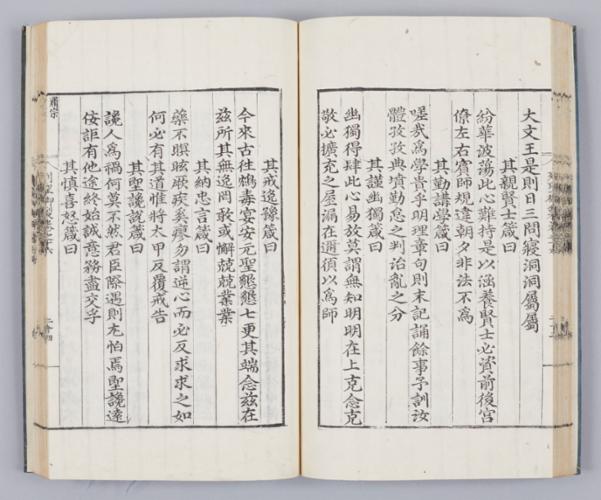 大文王是則日三問寢洞洞屬屬
其親賢士箴曰
紛華波蕩此心難持是以涵養賢士必資前後宮
僚左右賓師規違朝夕非法不爲
其勤講學箴曰
嗟我爲學貴乎明理章句則末記誦餘事予訓汝
體孜孜典墳勤怠之判治亂之分
其謹幽獨箴曰
幽獨得肆此心易放莫謂無知明明在上克念克
敬必擴充之屋漏在邇須以爲師
其戒逸豫箴曰
今來古往鴆毒宴安元聖懇懇七更其端念茲在
茲所其無逸罔敢或懈兢兢業業
其納忠言箴曰
藥不瞑眩厥疾奚廖勿謂逆心而必反求求之如
何必有其道惟將太甲反覆戒告
其聖讒說箴曰
讒人爲禍何莫不然君臣際遇則尤怕焉聖讒遠
佞詎有他途終始誠意務盡交孚
其慎喜怒箴曰
肅宗